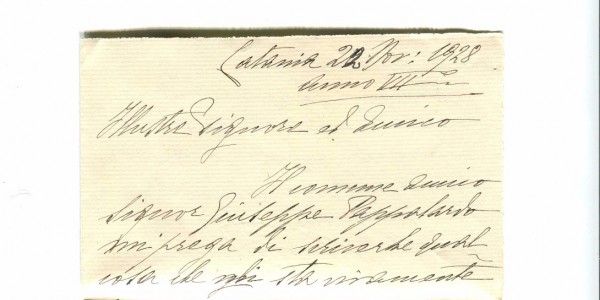 Catania 22 Nov: 1928
Anno VIIº
Illustre Signore ed Amico
Il comune amico
signor Giuseppe Pappalardo
mi prega di scriverle qual
cosa che sta vivamente